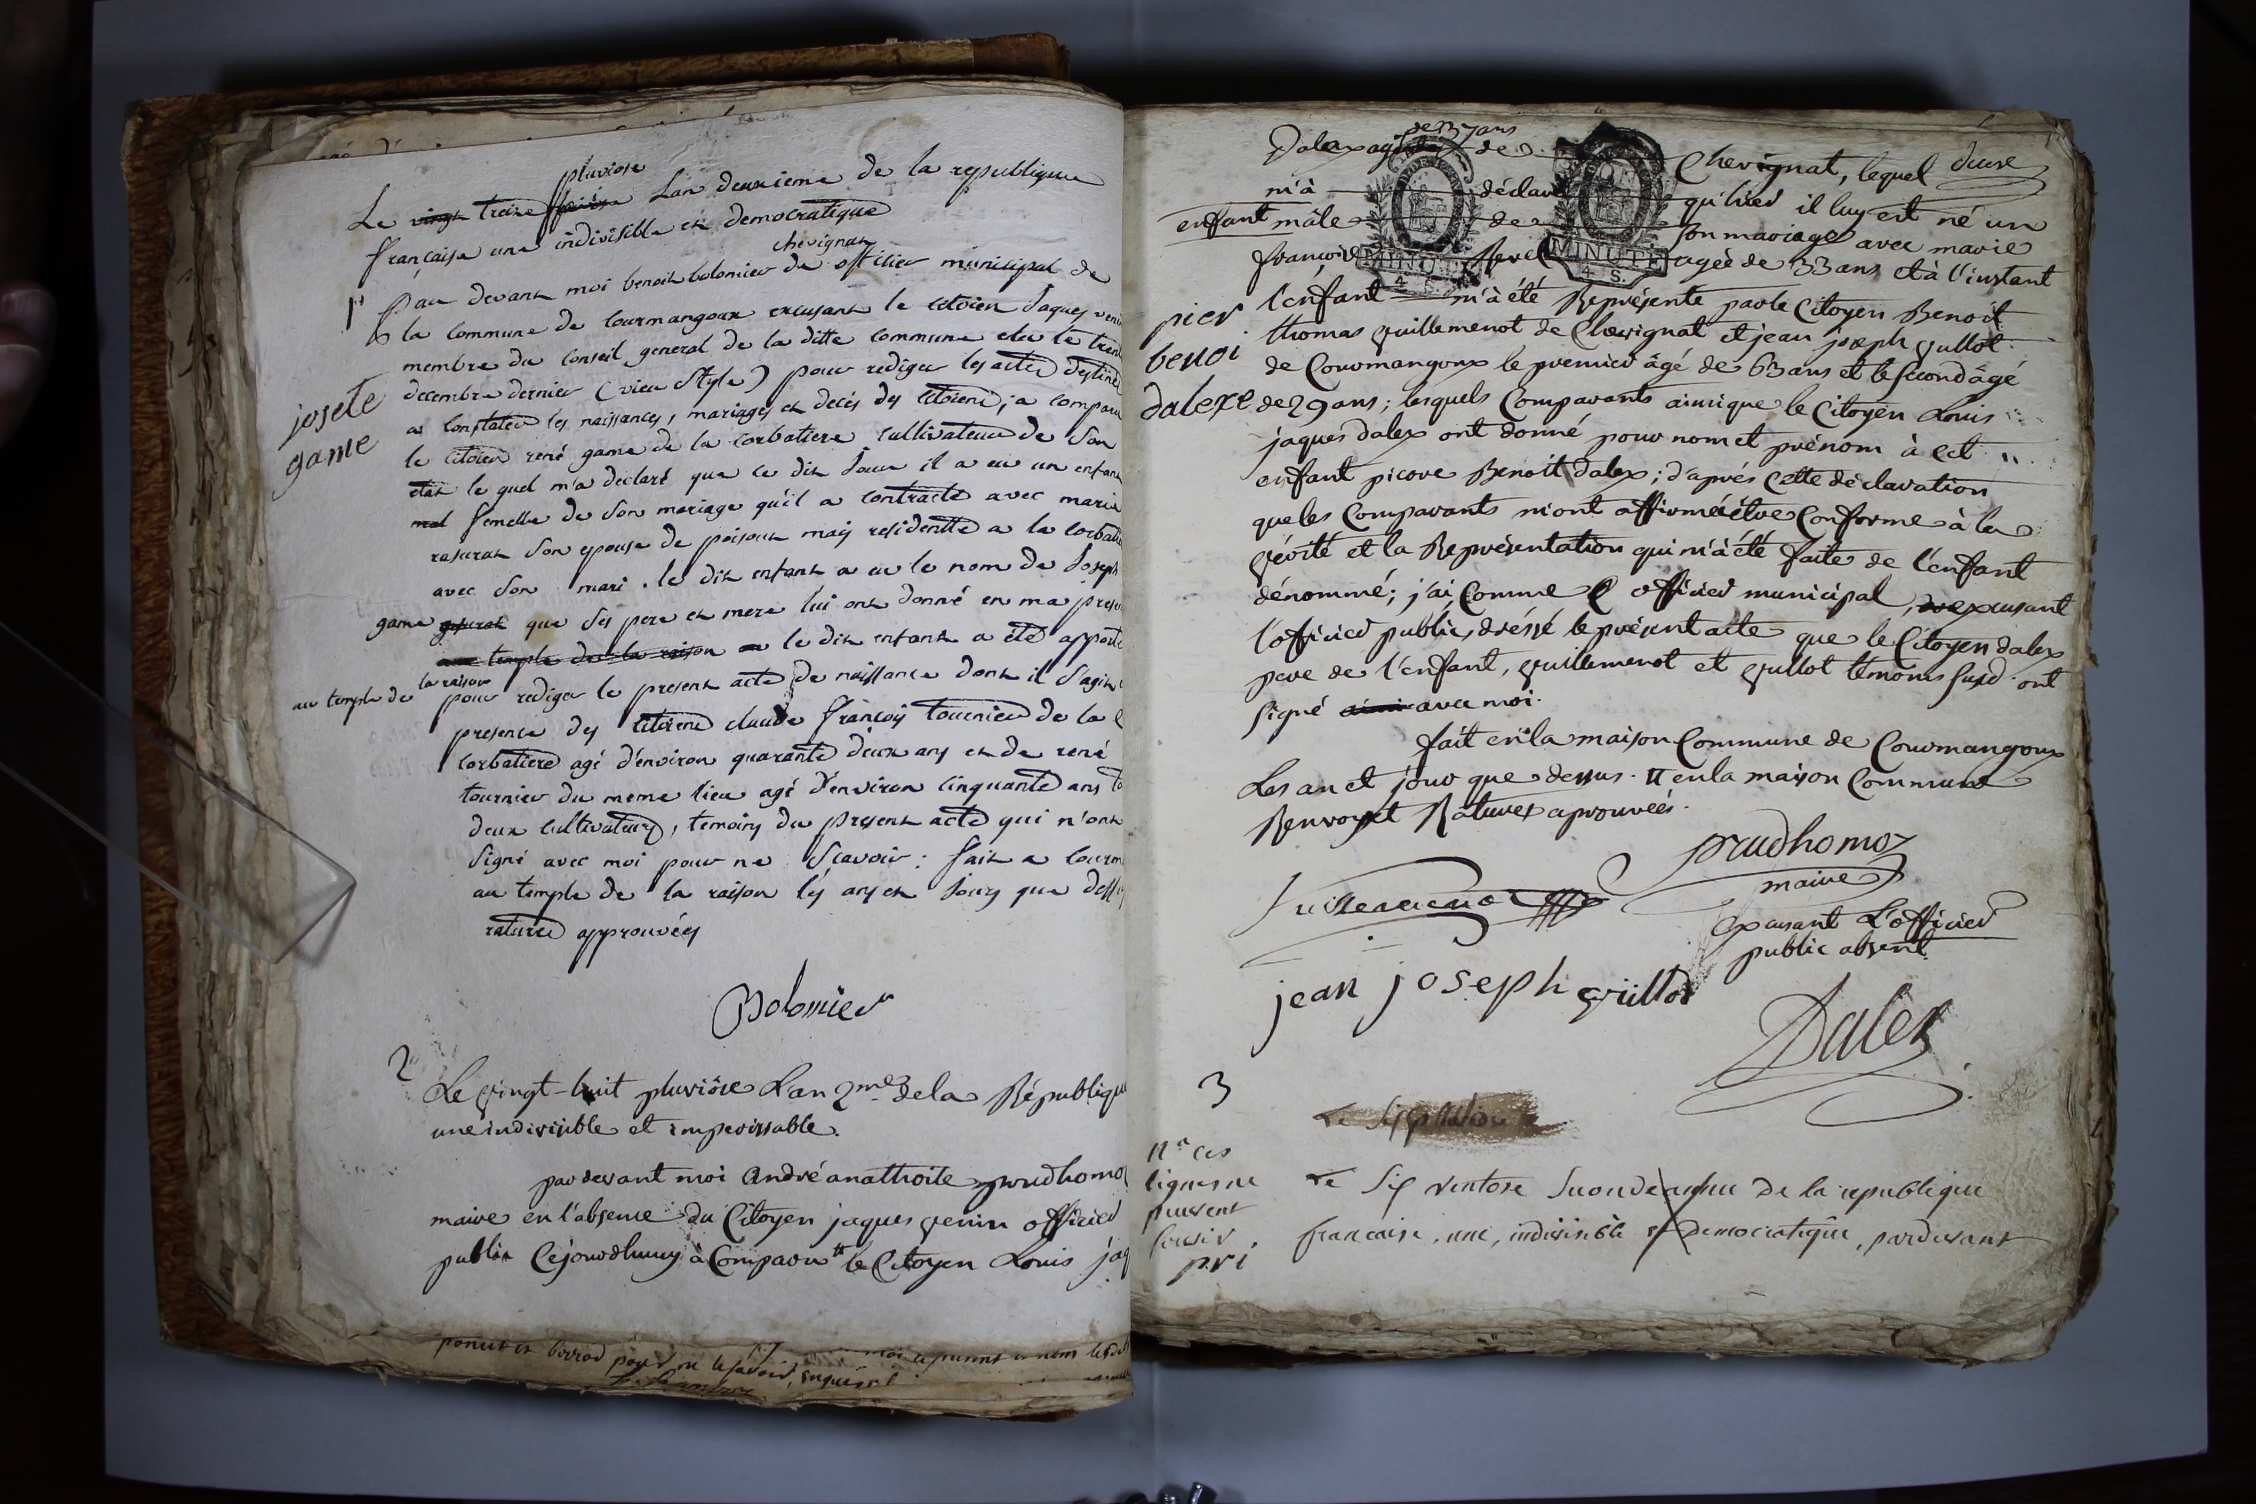 pluviose
Le vingt treize frimaire Lan deuxieme de la republique
française une indivisible et democratique
chevignat
1er Par devant moi benoit bolomier de officier municipal de
la commune de Courmangoux excusant le citoien Jaques veni
membre du Conseil general de la ditte commune elu le trent
decembre dernier (vieu Style) pour rediger les actes destiné
a Constater les naissances, mariages et decès des citoiens, a comparu
josete
game
le citoien rené game de la corbatiere Cultivateur de Son
etat le quel m'a declaré que ce dit Jour il a eu un enfant
mal femelle de Son mariage qu'il a contracté avec marie
rasurat Son epouse de poisoux mais residentte a la Corbati
avec Son mari. le dit enfant a eu le nom de Joseph
game que Ses pere et mere lui ont donné en ma prese
au temple de la raison le dit enfant a été apporté
au temple de la raison pour rediger le present acte de naissance dont il S'agit
presence des citoiens claude françois tournier de la
Corbatiere agé d'environ quarante deux ans et de rené
tournier du meme lieu agé d'environ Cinquante ans
deux Cultivateurs, temoins du present acte qui n'ont
Signé avec moi pour ne Scavoir: fait a Courm
au temple de la raison les ans et Jours que dessu
ratures approuvées
Bolomier
2
Le vingt-huit pluviôse L'an 2me de la Républiqu
une indivisible et imperissable.
par devant moi André anathoile prudhomo
maire en l'absence du Citoyen jaques venin officier
public Cejourdhuy à Comparu le Citoyen Louis jaq
poncet et borrod pour ne le savoir, enquis
de 37 ans
Dalex agé de Chevignat, lequel
m'à déclaré qu'hier il luy est né un
enfant mâle de Son mariage avec marie
françoise agée de 33 ans, et à l'instant
MINUTE
4. S.
MINUTE
4. S.
l'enfant m'à été Représenté par le Citoyen Benoit
pier
benoi
dalexe
thomas guillemenot de Chevignat et jean joseph gullot
de Courmangoux le premier âgé de 63 ans et le second âgé
de 29 ans; lesquels Comparants ainsi que le Citoyen Louis
jaques Dalex ont donné pour nom et prénom à cet
enfant picore Benoit Dalex; d'aprés Cette déclaration
que les Comparants m'ont affirmé être Conforme à la
vérité et la Représentation qui m'à été faite de l'enfant
dénommé; j'ai, Comme officier municipal, excusant
l'officier public, dréssé le présent acte que le Citoyen dalex
pere de l'enfant, guillemenot et gullot témoins susd. ont
signé ainsi avec moi.
fait en la maison Commune de Courmangoux
Les an et jour que dessus. en la maison Commune
Renvoy et Ratures aprouvées.
prudhomo
maire
excusant L'officier
public absent
guillemenot
jean joseph guillot
Dalex
3
ces
lignes ne
peuvent
servir
pri
Le Six ventose Second année De la republique
francaise, une, indivisible et Democratique, pardevant